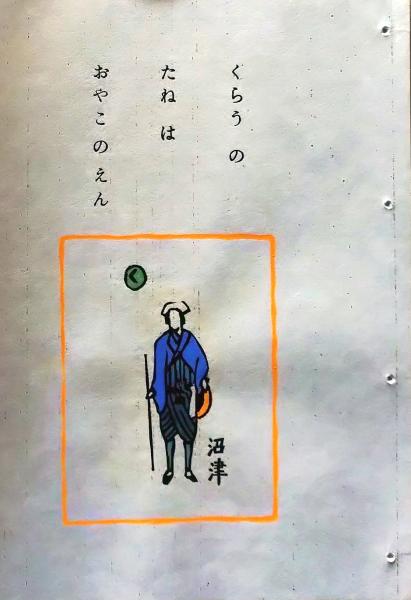 くらう の
たね は
おやこ の えん
く
沼津